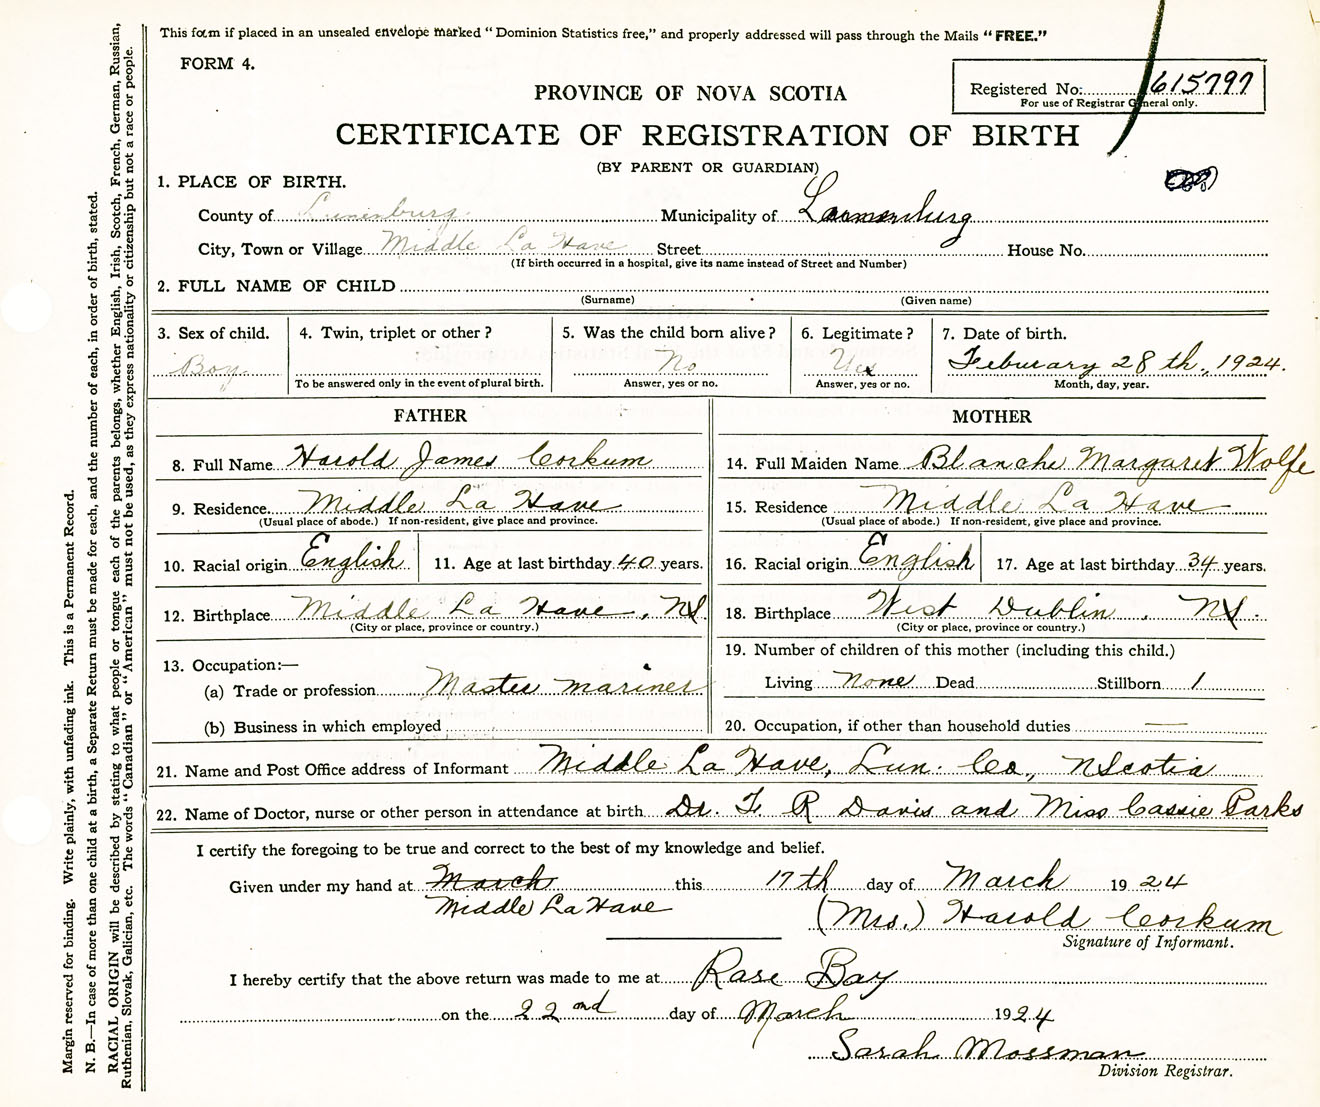 This form if placed in an unsealed envelope marked "Dominion Statistics free," and properly addressed will pass through the Mails "FREE."
FORM 4.
Registered No: 615797
For use of Registrar General only.
PROVINCE OF NOVA SCOTIA
CERTIFICATE OF REGISTRATION OF BIRTH
(BY PARENT OR GUARDIAN)
1. PLACE OF BIRTH.
County of Lunenburg Municipality of Lunenburg
City, Town or Village Middle La Have Street House No.
(If birth occurred in a hospital, give its name instead of Street and Number)
2. FULL NAME OF CHILD
(Surname) (Given name)
3. Sex of child. 4. Twin, triplet or other? 5. Was the child born alive? 6. Legitimate? 7. Date of birth.
Boy No Yes Feburary 28th, 1924.
To be answered only in the event of plural birth. Answer, yes or no. Answer, yes or no. Month, day, year.
FATHER MOTHER
8. Full Name Harold James Corkum 14. Full Maiden Name Blanche Margaret Wolfe
9. Residence Middle La Have 15. Residence Middle La Have
(Usual place of abode.) If non-resident, give place and province. (Usual place of abode.) If non-resident, give place and province.
10. Racial origin English 11. Age at last birthday 40 years. 16. Racial origin English 17. Age at last birthday 34 years.
12. Birthplace Middle La Have, NS. 18. Birthplace West Dublin, NS.
(City or place, province or country.) (City or place, province or country.)
13. Occupation:— 19. Number of children of this mother (including this child.)
(a) Trade or profession Master mariner Living none Dead Stillborn 1
(b) Business in which employed 20. Occupation, if other than household duties —
21. Name and Post Office address of Informant Middle La Have, Lun. Co., N Scotia
22. Name of Doctor, nurse or other person in attendance at birth Dr. F. R Davis and Miss Cassie Parks
I certify the foregoing to be true and correct to the best of my knowledge and belief.
Given under my hand at March this 17th day of March 1924
Middle La Have (Mrs.) Harold Corkum
Signature of Informant.
I hereby certify that the above return was made to me at Rose Bay
on the 22nd day of March 1924
Sarah Mossman
Division Registrar.
Margin reserved for binding. Write plainly, with unfading ink. This is a Permanent Record.
N. B.—In case of more than one child at a birth, a Separate Return must be made for each, and the number of each, in order of birth, stated.
RACIAL ORIGIN will be described by stating to what people or tongue each of the parents belongs, whether English, Irish, Scotch, French, German, Russian,
Ruthenian, Slovak, Galician, etc. The words "Canadian" or "American" must not be used, as they express nationality or citizenship but not a race or people.